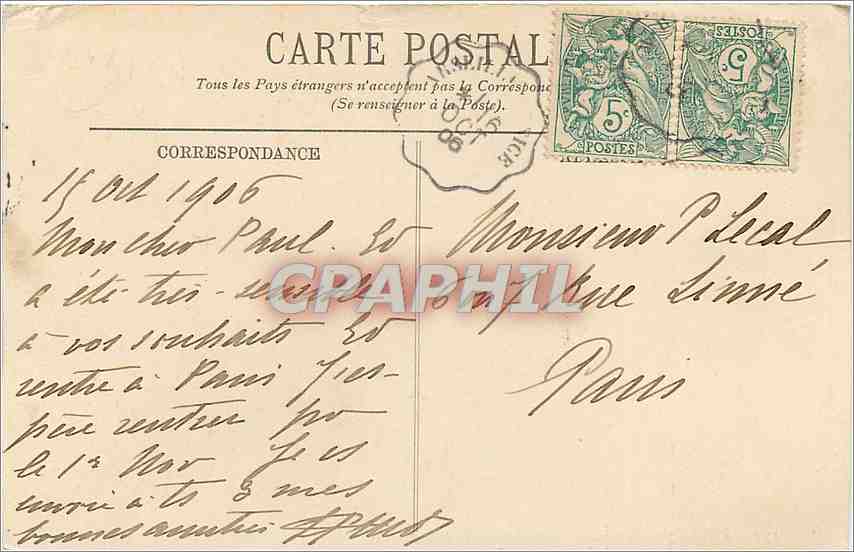 CARTE POSTALE
Tous les Pays étrangers n'acceptent pas la Correspon
(Se renseigner à la Poste).
CORRESPONDANCE
15 Oct 1906
Mon cher Paul. Ed
a été très sensible
à vos souhaits Ed
rentre à Paris J'es-
père rentrer po
le 1er Nov Je
à ts 3 mes
bonnes amitiés
Monsieur P Lecal
Rue Linné
Paris
5c
POSTES
5c
POSTES
OCT
06
NICE
CPAPHIL